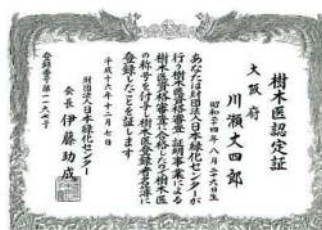 樹木医認定証
大阪府
川瀬丈四郎
昭和二十四年八月二十六日生
あなたは財団法人日本緑化センターが
行う樹木医資格審査・証明事業による
樹木医資格審査に合格したので樹木医
の称号を付与し樹木医登録者名簿に
登録したことを証します
平成十六年十二月七日
財団法人日本緑化センター
会長 伊藤助成